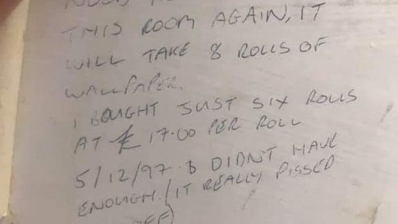 THIS ROOM AGAIN, IT
WILL TAKE 8 ROLLS OF
WALLPAPER.
I BOUGHT JUST SIX ROLLS
AT £17.00 PER ROLL
5/12/97 & DIDNT HAVE
ENOUGH. (IT REALLY PISSED